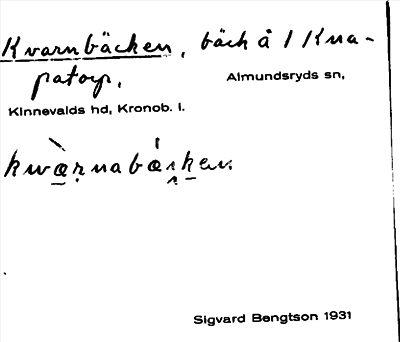 Kvarnbäcken, bäck å 1 Kna-
patorp.
Almundsryds sn,
Kinnevalds hd, Kronob. l.
kwærnabæsken.
Sigvard Bengtson 1931